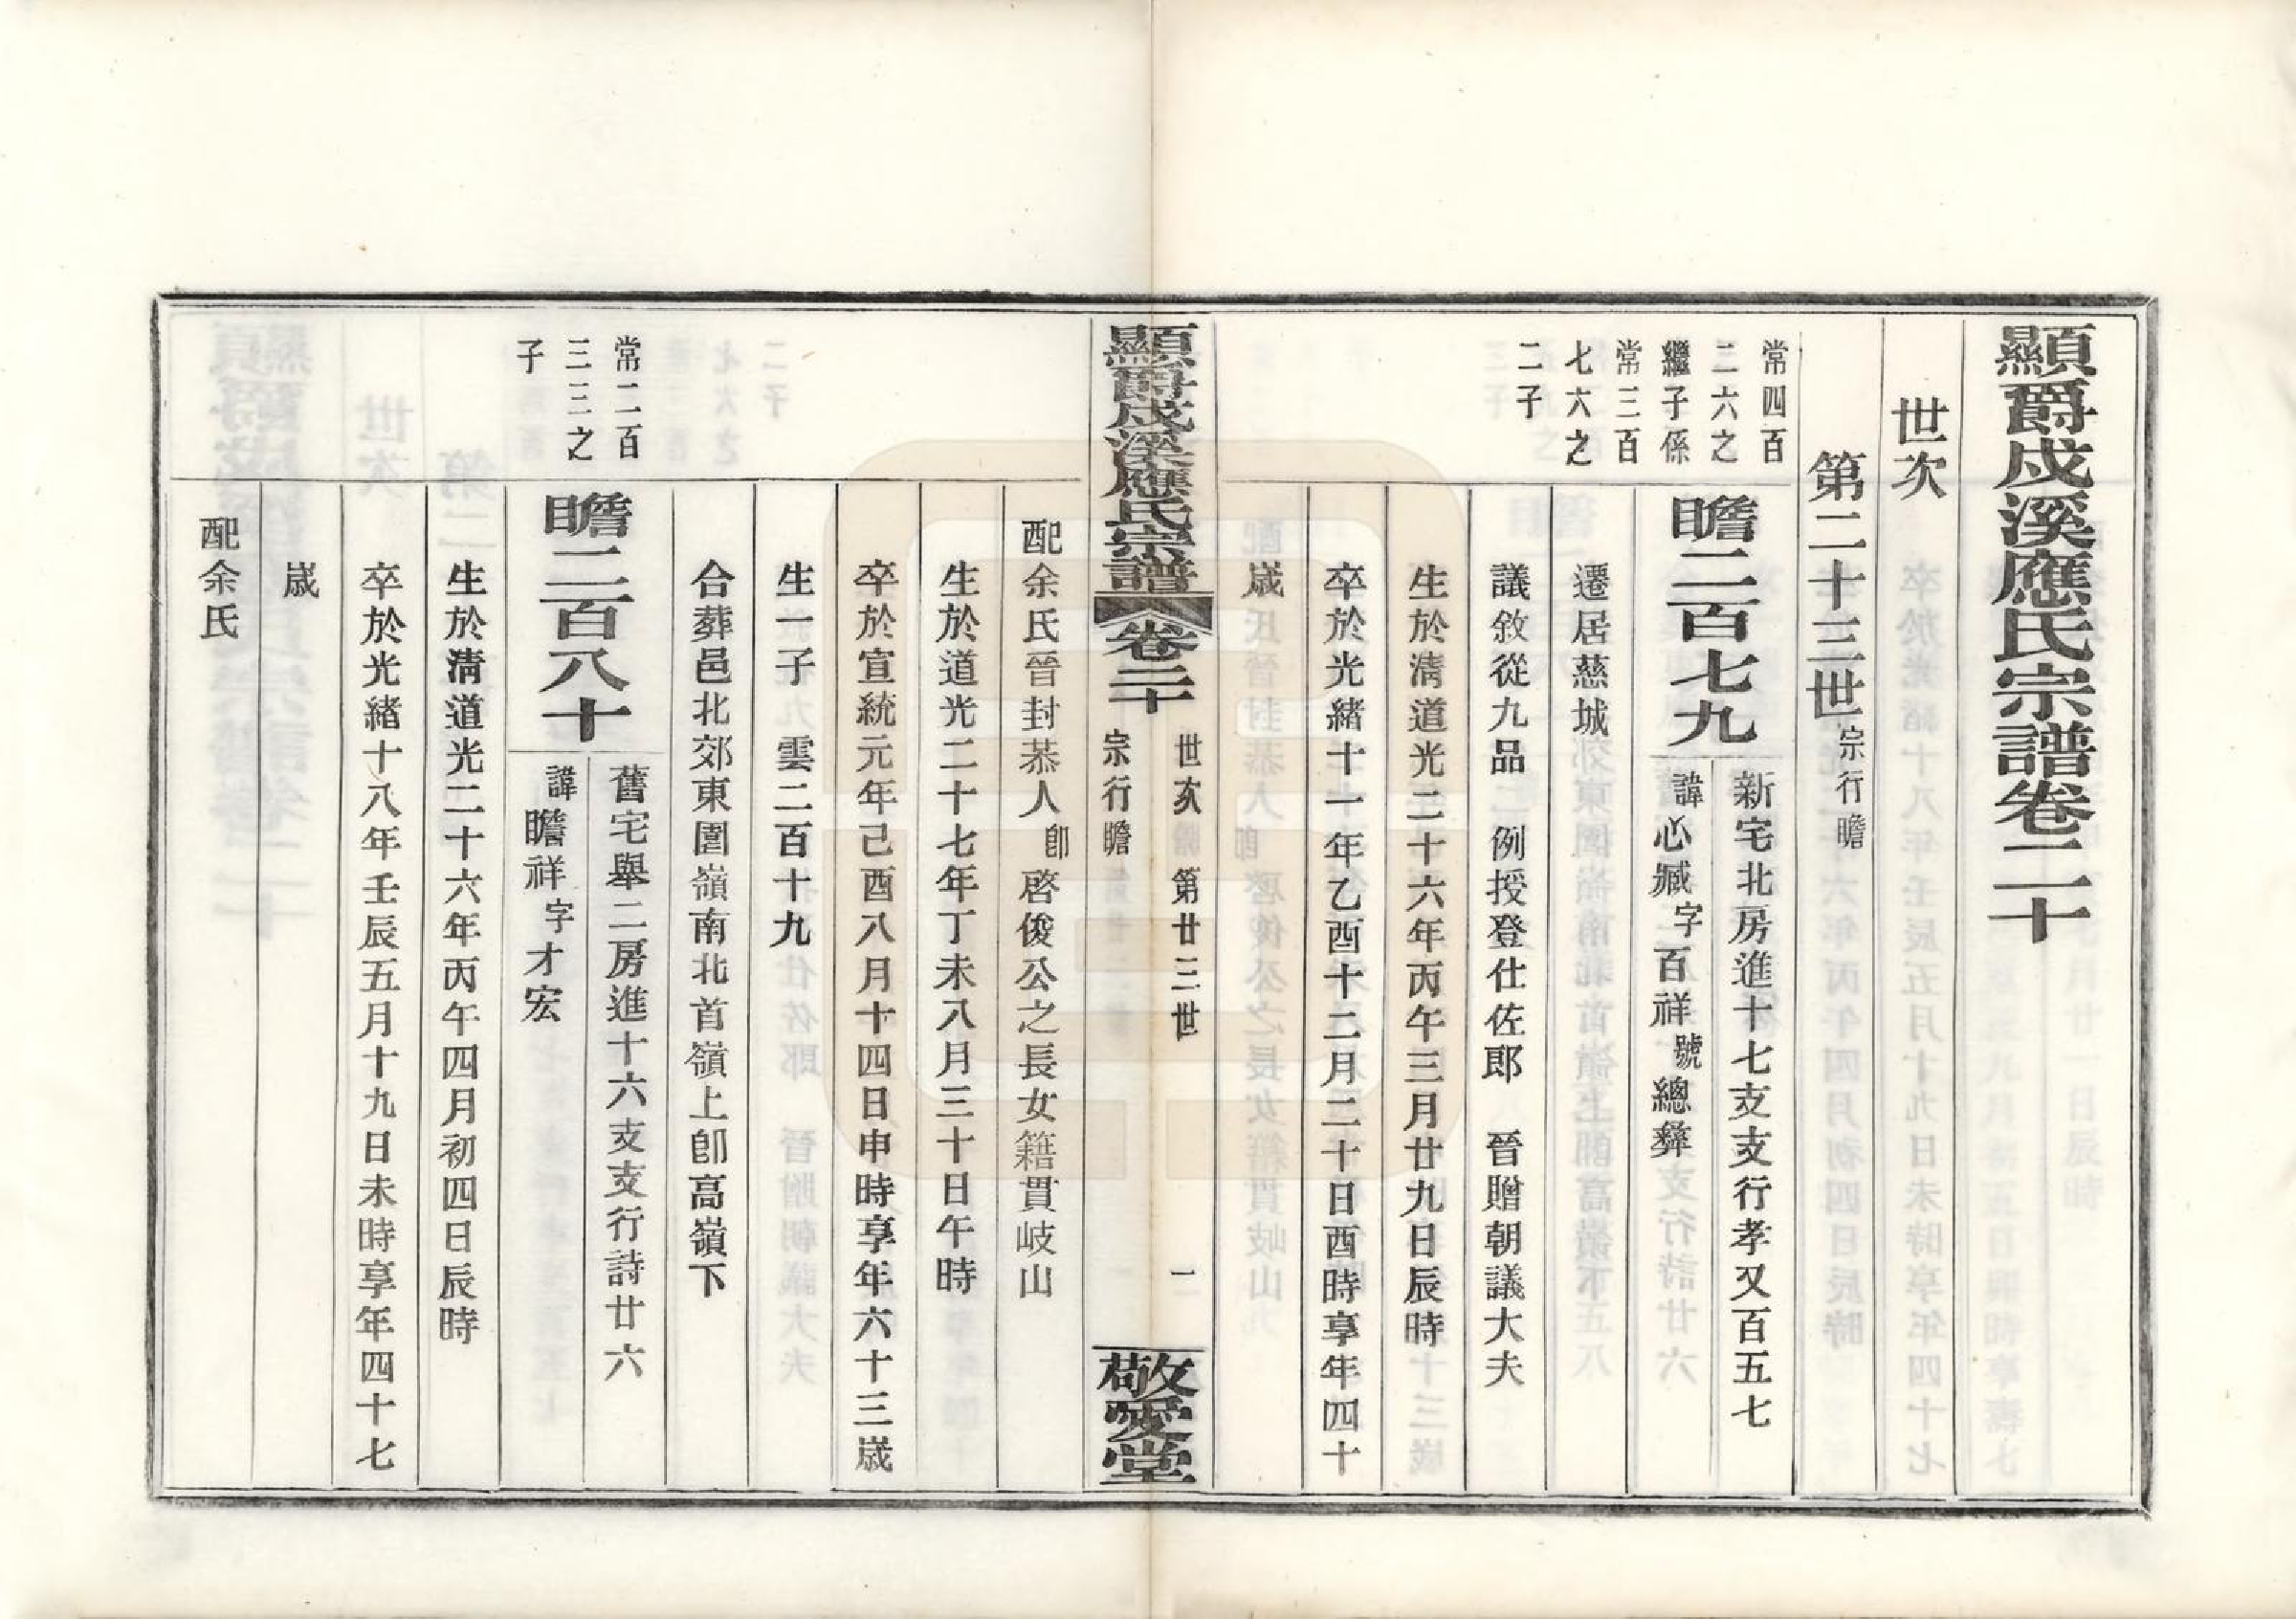 顯爵戍溪應氏宗譜卷二十
世次
第二十三世宗行瞻
常四百
二六之
繼子係
常三百
七六之
二子
瞻二百七九
新宅北房進十七支支行孝又百五七
諱心臧字百祥號總彝
遷居慈城
議敘從九品 例授登仕佐郎 晉贈朝議大夫
生於清道光二十六年丙午三月廿九日辰時
卒於光緒十一年乙酉十二月二十日酉時享年四十
歲
顯爵戍溪應氏宗譜 卷二十 世次 第廿三世 宗行瞻 一 敬愛堂
配余氏晉封恭人卽啓俊公之長女籍貫岐山
生於道光二十七年丁未八月三十日午時
卒於宣統元年己酉八月十四日申時享年六十三歲
生一子 雲二百十九
合葬邑北郊東圍嶺南北首嶺上卽高嶺下
常二百
三三之
子
瞻二百八十
舊宅舉二房進十六支支行詩廿六
諱瞻祥字才宏
生於清道光二十六年丙午四月初四日辰時
卒於光緒十八年壬辰五月十九日未時享年四十七
歲
配余氏